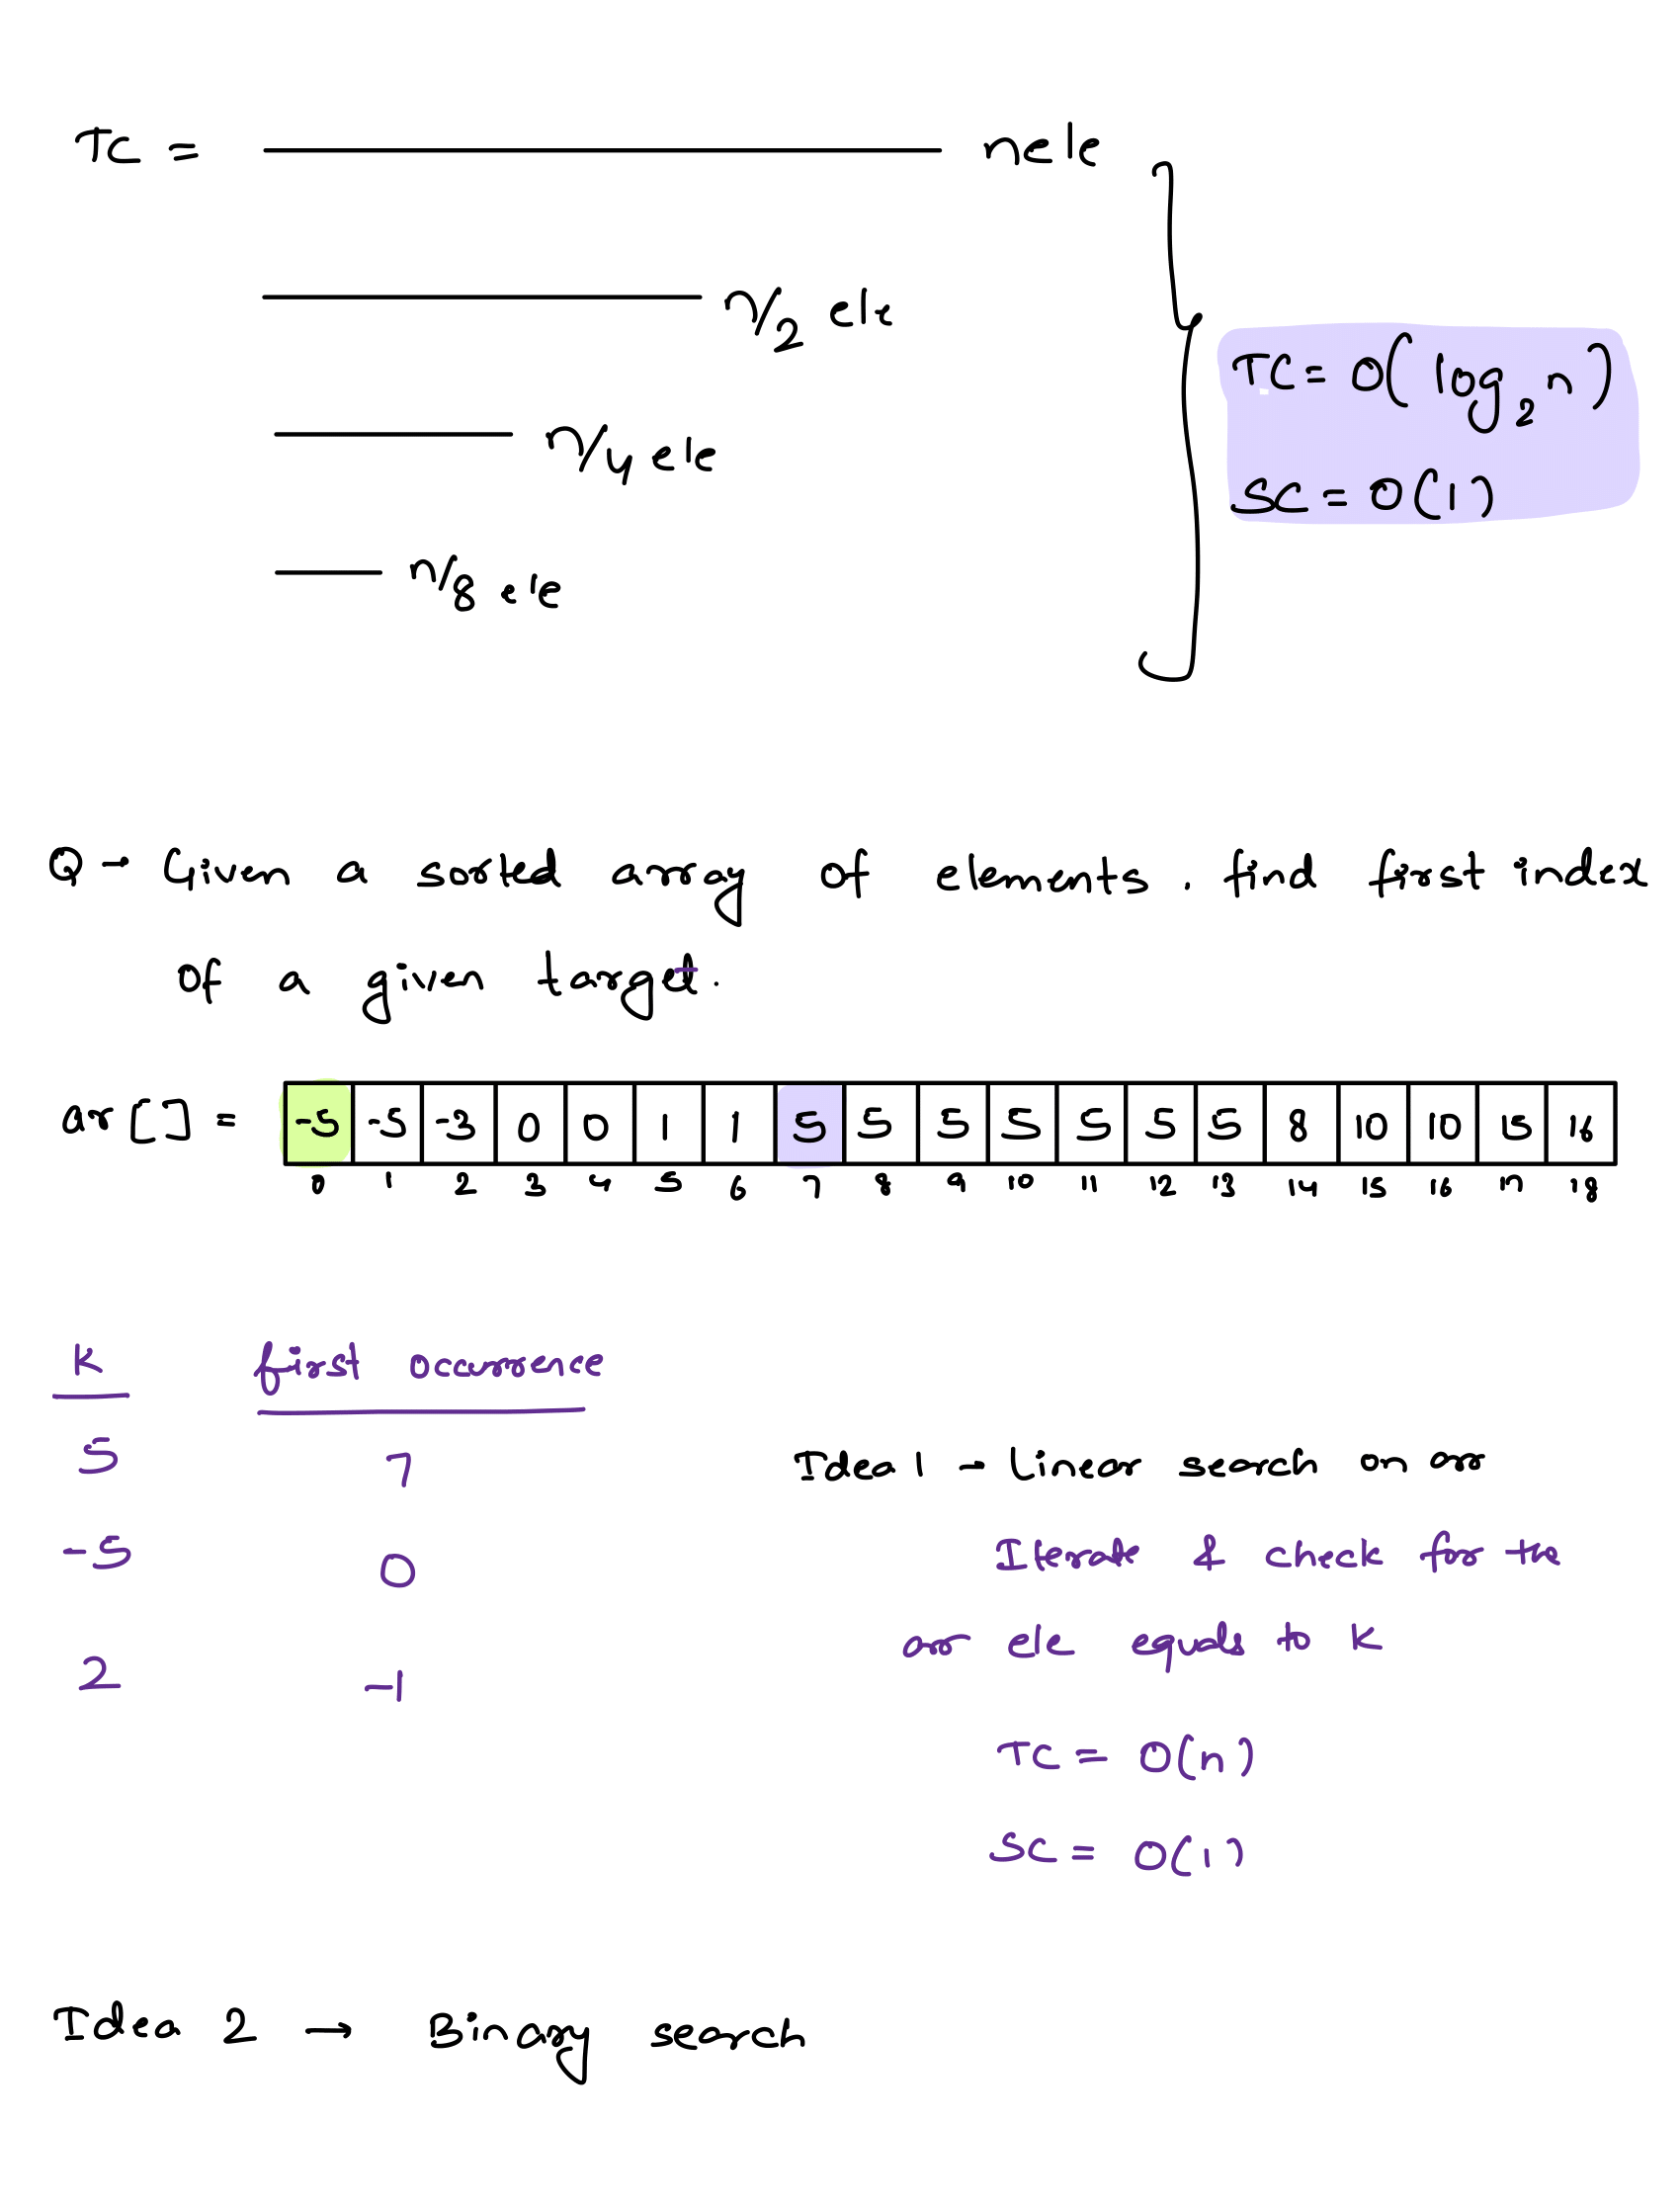 TC = n ele
n/2 ele
n/4 ele
n/8 ele
TC = O(log₂n)
SC = O(1)
Q → Given a sorted array of elements. find first index
of a given target.
ar[] = -5 -5 -3 0 0 1 1 5 5 5 5 5 5 5 8 10 10 15 16
0 1 2 3 4 5 6 7 8 9 10 11 12 13 14 15 16 17 18
K first occurrence
5 7
-5 0
2 -1
Idea 1 - Linear search on arr
Iterate & check for the
arr ele equals to K
TC = O(n)
SC = O(1)
Idea 2 → Binary search